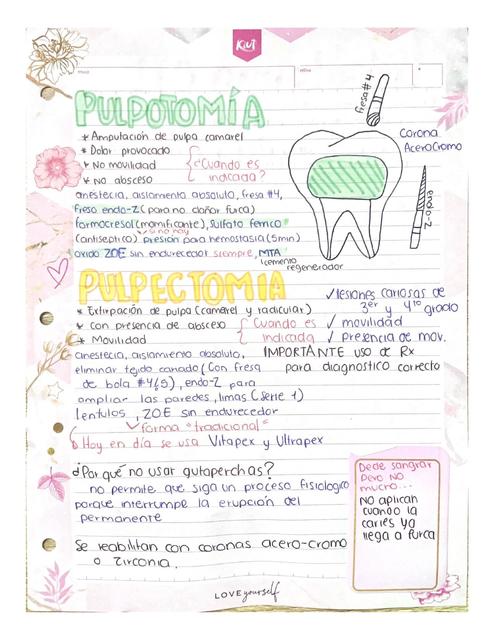 Kiut
PULPOTOMÍA
* Amputación de pulpa camarel
* Dolor provocado
* No movilidad
* No absceso
¿Cuando es
indicada?
fresa #4
Corona
AceroCromo
endo-z
anestecia, aislamiento absoluto, fresa #4,
freso endo-Z (para no dañar furca)
formocresol (momificante), sulfato ferrico
si no hay
(antiseptico) presión para hemostasia (5min)
oxido ZOE sin endurecedor siempre, MTA
cemento
regenerador
PULPECTOMIA
* Extirpación de pulpa (camarel y radicular)
* con presencia de absceso
* Movilidad
Cuando es
indicada
✓ lesiones cariosas de
3er y 4to grado
✓ movilidad
✓ presencia de mov.
anestecia, aislamiento absoluto,
eliminar tejido cariado (Con fresa
de bola #4/5), endo-Z para
ampliar las paredes, limas (serie 1)
lentulos, ZOE sin endurecedor
forma "tradicional"
IMPORTANTE uso de Rx
para diagnostico correcto
Hoy en día se usa Vitapex y Ultrapex
¿Por qué no usar gutaperchas?
no permite que siga un proceso fisiologico
porque interrumpe la erupción del
permanente
Se reabilitan con coronas acero-cromo
o zirconia.
Debe sangrar
pero NO
mucro...
NO aplican
cuando la
caries ya
llega a furca
LOVE yourself